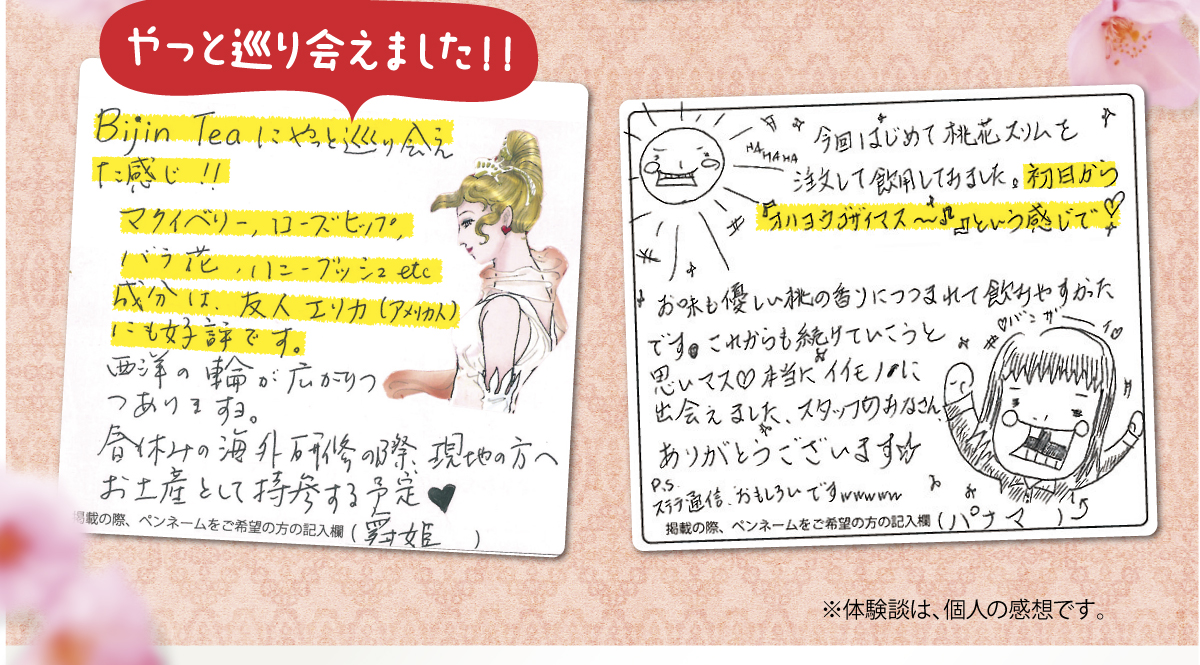 やっと巡り会えました!!
Bijin Teaにやっと巡り会え
た感じ!!
マクイベリー,ローズヒップ,
バラ花,ハニーブッシュetc
成分は、友人エリカ(アメリカ人)
にも好評です。
西洋の輪が広がりつ
つあります。
春休みの海外研修の際、現地の方へ
お土産として持参する予定♥
掲載の際、ペンネームをご希望の方の記入欄(舞姫)
HAHAHA
今回はじめて桃花スリムを
注文して飲用してみました。初日から
『オハヨウゴザイマス〜♪』という感じで♡
お味も優しい桃の香りにつつまれて飲みやすかった
です。これからも続けていこうと
思いマス♡本当にイイモノに
出会えました、スタッフのみなさん、
ありがとうございます☆
P.S.
ステラ通信、おもしろいですwwwww
♡バンザーイ♡
掲載の際、ペンネームをご希望の方の記入欄(パナマ)
※体験談は、個人の感想です。